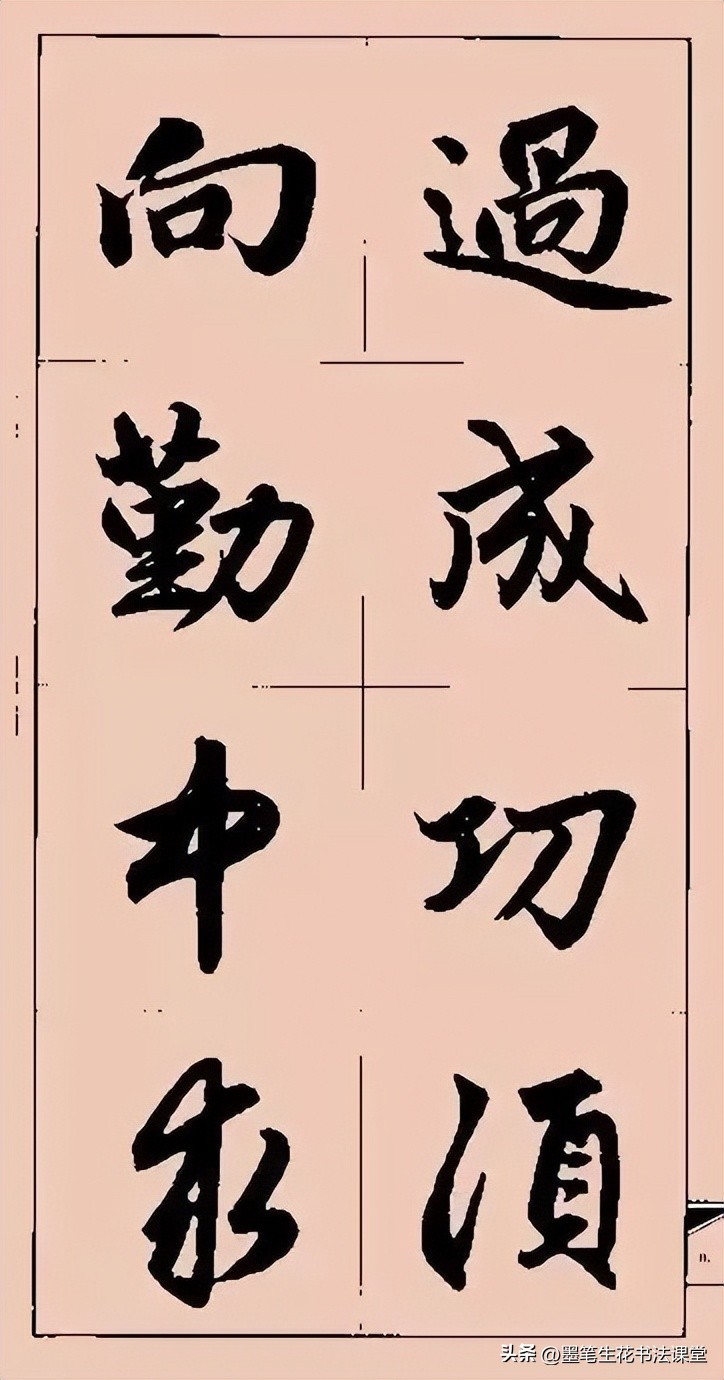 過成功須
向勤中求
头条 @墨笔生花书法课堂